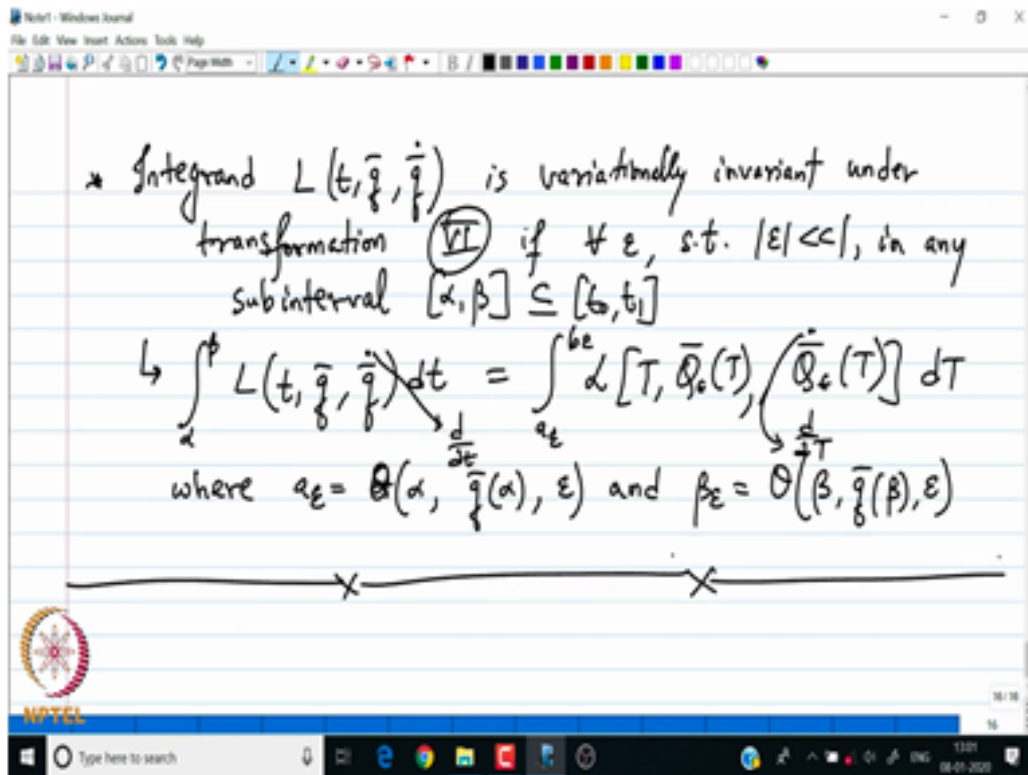 Note1 - Windows Journal
File Edit View Insert Actions Tools Help
Page Width
* Integrand L(t, q̄, q̄̇) is variationally invariant under
transformation (VI) if ∀ ε, s.t. |ε| <<1, in any
subinterval [α, β] ⊆ [t₀, t₁]
↳ ∫_α^β L(t, q̄, q̄̇) dt = ∫_{a_ε}^{b_ε} α [T, Q̄_ε(T), Q̄̇_ε(T)] dT
d/dt d/dT
where a_ε = θ(α, q̄(α), ε) and β_ε = θ(β, q̄(β), ε)
NPTEL
16/16
16
Type here to search
ENG
13:01
08-01-2020